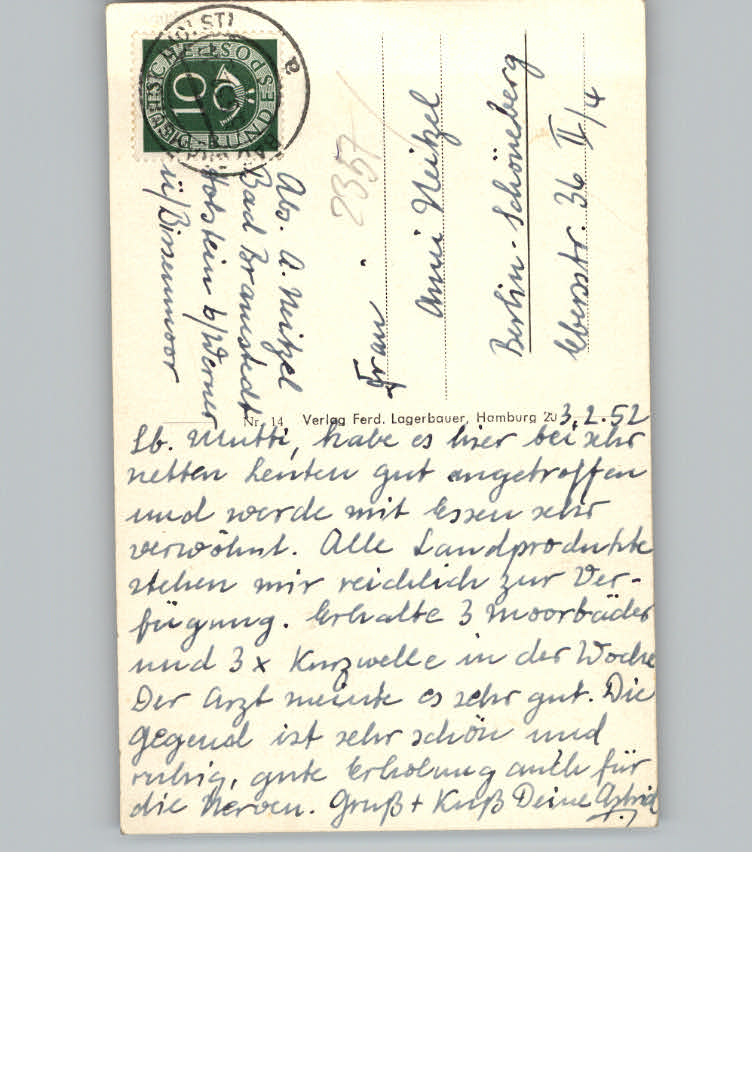 10
DEUTSCHE BUNDESPOST
(HOLST)
e
Abs. A. Neitzel
Bad Bramstedt
Holstein b/Werner
ü/Bissenmoor
2357
Frau
Anni Neitzel
Berlin-Schöneberg
Ebersstr. 36 II/4
Nr. 14 Verlag Ferd. Lagerbauer, Hamburg 20
3.2.52
Lb. Mutti, habe es hier bei sehr
netten Leuten gut angetroffen
und werde mit Essen sehr
verwöhnt. Alle Landprodukte
stehen mir reichlich zur Ver-
fügung. Erhalte 3 Moorbäder
und 3x Kurzwelle in der Woche
Der Arzt meinte es sehr gut. Die
Gegend ist sehr schön und
ruhig, gute Erholung auch für
die Nerven. Gruß + Kuß Deine Astrid